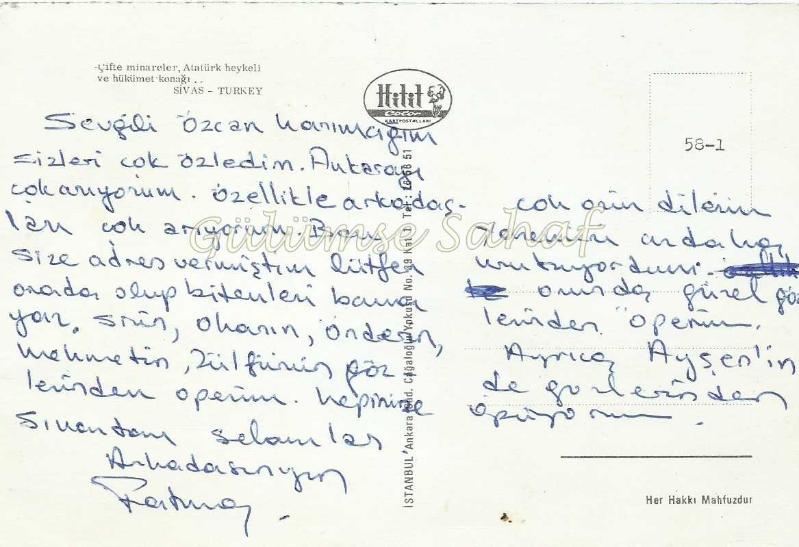 Çifte minareler, Atatürk heykeli
ve hükümet konağı..
SİVAS - TURKEY
Hitit
Color
KARTPOSTALLARI
58-1
Sevgili Özcan hanımcığım
sizleri çok özledim. Ankarayı
çok arıyorum. özellikle arkadaş-
ları çok arıyorum. Ben
size adres vermiştim lütfen
orada olup bitenleri bana
yaz. Onun, Önderin,
Mehmetin, Zülfünün göz
lerinden öperim. hepinize
Sivastan selamlar
Arkadaşınız
Fatma
çok özür dilerim
unutuyordum.
onunda güzel göz
lerinden öperim.
Ayrıca Ayşen'in
de gözlerinden
öpüyorum.
Gülümse Sahaf
İSTANBUL Ankara Cad. Cağaloğlu Yokuşu No. 49 Kat 1 Tel:
Her Hakkı Mahfuzdur